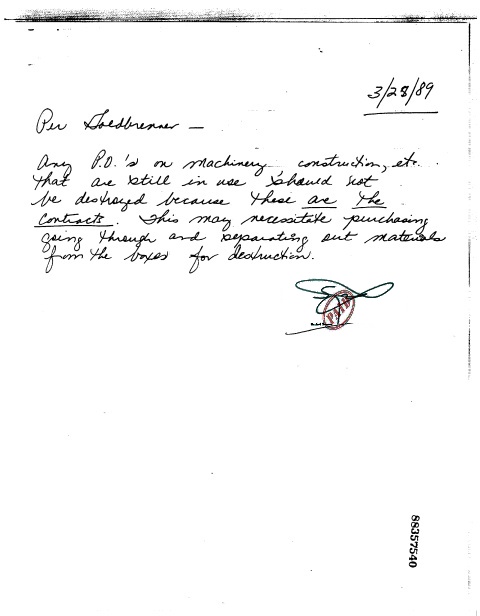 3/28/89
Per Goldbrenner —
Any P.O.'s on machinery construction, etc.
that are still in use should not
be destroyed because these are the
contracts. This may necessitate purchasing
going through and separating out materials
from the boxes for destruction.
PAID
88357540